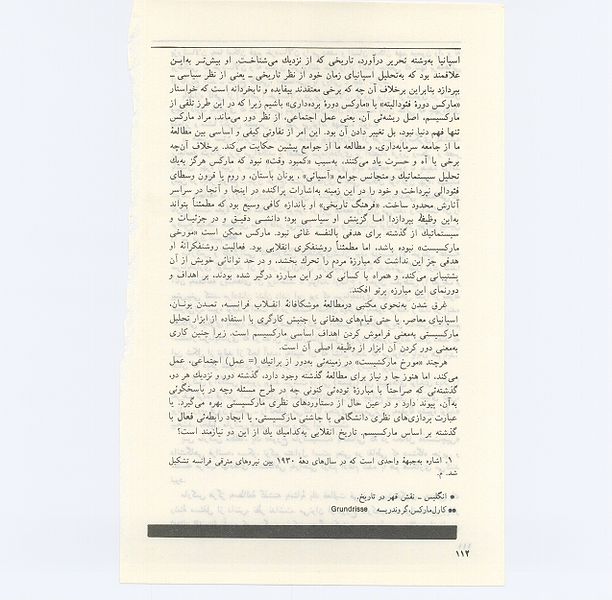 اسپانیا به‌رشته تحریر درآورد، تاریخی که از نزدیك می‌شناخت. او بیش‌تر به‌این
علاقمند بود که به‌تحلیل اسپانیای زمان خود از نظر تاریخی ـ یعنی از نظر سیاسی ـ
بپردازد بنابراین برخلاف آن چه که برخی معتقدند بیفایده و نابخردانه است که خواستار
«مارکس دورهٔ فئودالیته» یا «مارکس دورهٔ برده‌داری» باشیم زیرا که در این طرز تلقی از
مارکسیسم، اصل ریشه‌ئی آن، یعنی عمل اجتماعی، از نظر دور می‌ماند. مراد مارکس
تنها فهم دنیا نبود، بل تغییر دادن آن بود. این امر از تفاوتی کیفی و اساسی بین مطالعهٔ
ما از جامعه سرمایه‌داری، و مطالعه ما از جوامع پیشین حکایت می‌کند. برخلاف آن‌چه
برخی با آه و حسرت یاد می‌کنند، به‌سبب «کمبود وقت» نبود که مارکس هرگز به‌یك
تحلیل سیستماتیك و متجانس جوامع «آسیائی» ، یونان باستان، و روم یا قرون وسطای
فئودالی نپرداخت و خود را در این زمینه به‌اشارات پراکنده در اینجا و آنجا در سراسر
آثارش محدود ساخت. «فرهنگ تاریخی» او باندازه کافی وسیع بود که مطمئناً بتواند
به‌این وظیفه بپردازد! اما گزینش او سیاسی بود؛ دانشی دقیق و در جزئیات و
سیستماتیك از گذشته برای هدفی بالنفسه غائی نبود. مارکس ممکن است «مورخی
مارکسیست» نبوده باشد، اما مطمئناً روشنفکری انقلابی بود. فعالیت روشنفکرانهٔ او
هدفی جز این نداشت که مبارزهٔ مردم را تحرك بخشد، و در حد توانائی خویش از آن
پشتیبانی می‌کند، و همراه با کسانی که در این مبارزه درگیر شده بودند، بر اهداف و
دورنمای این مبارزه پرتو افکند.
غرق شدن به‌نحوی مکتبی درمطالعهٔ موشکافانهٔ انقلاب فرانسه، تمدن یونان،
اسپانیای معاصر، یا حتی قیام‌های دهقانی یا جنبش کارگری با استفاده از ابزار تحلیل
مارکسیستی به‌معنی فراموش کردن اهداف اساسی مارکسیسم است. زیرا چنین کاری
به‌معنی دور کردن آن ابزار از وظیفه اصلی آن است.
هرچند «مورخ مارکسیست» در زمینه‌ئی به‌دور از پراتیك (= عمل) اجتماعی، عمل
می‌کند، اما هنوز جا و نیاز برای مطالعهٔ گذشته وجود دارد، گذشته دور و نزدیك هر دو،
گذشته‌ئی که صراحتاً با مبارزهٔ توده‌ئی کنونی چه در طرح مسئله وچه در پاسخگوئی
به‌آن، پیوند دارد و در عین حال از دستاوردهای نظری مارکسیستی بهره می‌گیرد. یا
عبارت پردازی‌های نظری دانشگاهی با چاشنی مارکسیستی، یا ایجاد رابطه‌ئی فعال با
گذشته بر اساس مارکسیسم. تاریخ انقلابی به‌کدامیك یك از این دو نیازمند است؟
۱. اشاره به‌جبههٔ واحدی است که در سال‌های دههٔ ۱۹۳۰ بین نیروهای مترقی فرانسه تشکیل
شد. م.
● انگلیس ـ نقش قهر در تاریخ.
●● کارل‌مارکس،گروندریسه Grundrisse
۱۱۲